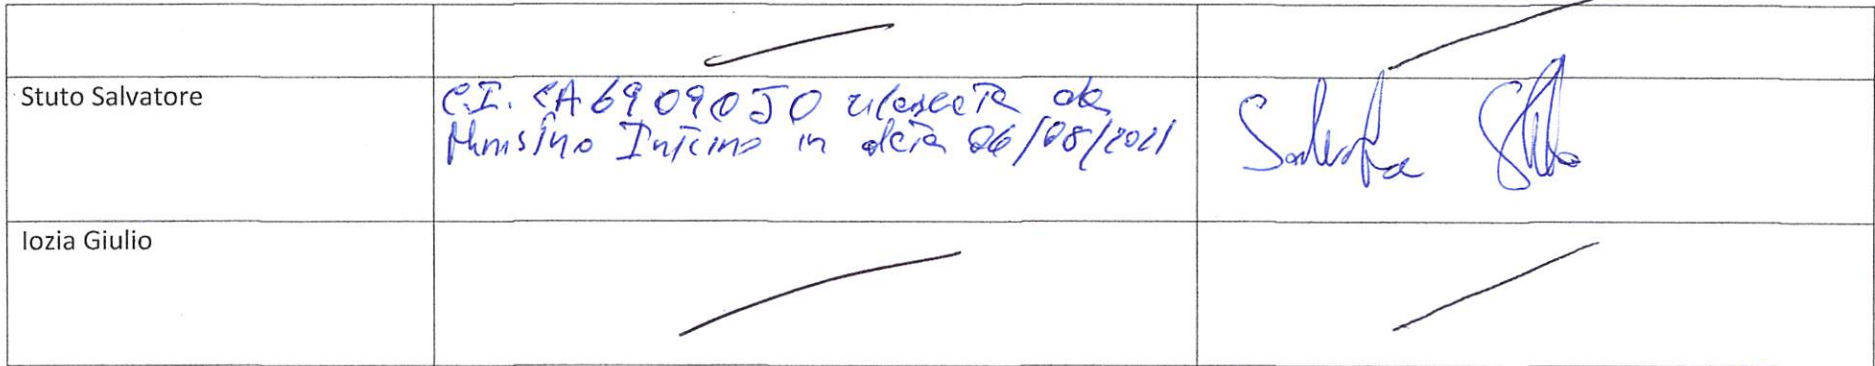 Stuto Salvatore
C.I. CA69090JO rilasciata da
Ministro Interno in data 06/08/2021
Salvatore Stuto
Iozia Giulio